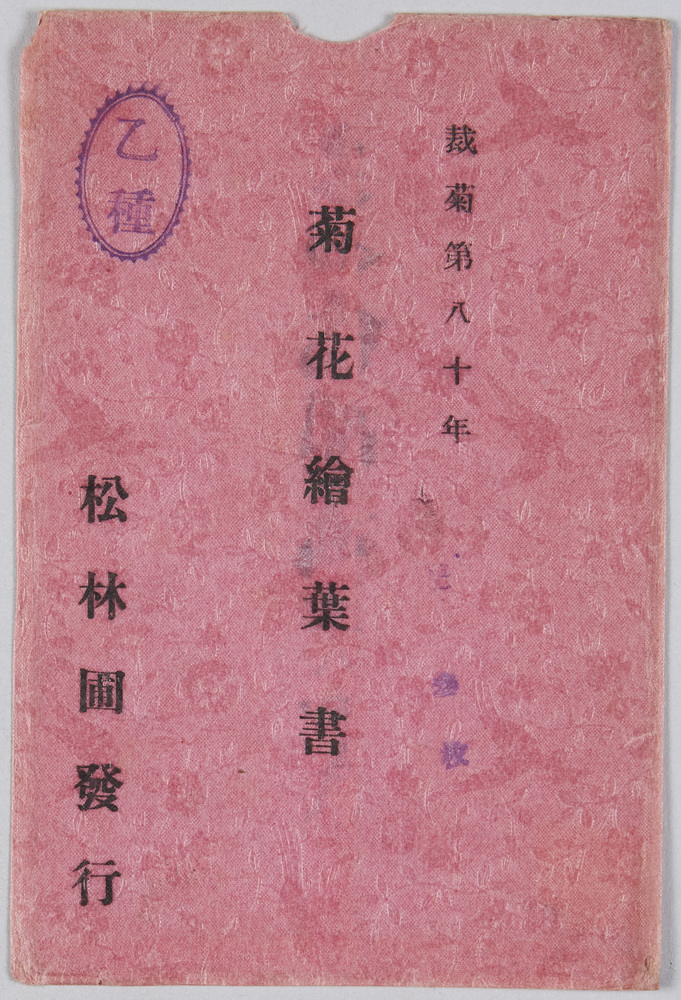 裁菊第八十年
枚
菊花繪葉書
松林圃發行
乙種